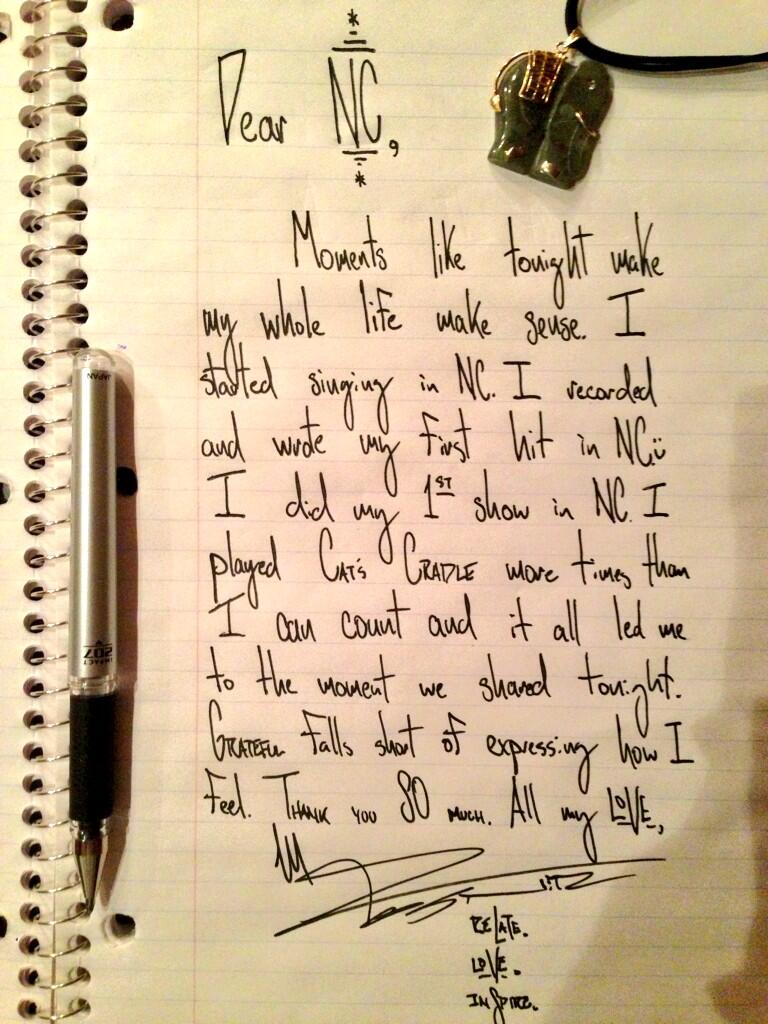 Dear NC,
Moments like tonight make
my whole life make sense. I
started singing in NC. I recorded
and wrote my first hit in NC.ü
I did my 1ST show in NC. I
played CAT'S CRADLE more times than
I can count and it all led me
to the moment we shared tonight.
GRATEFUL falls short of expressing how I
feel. THANK YOU SO MUCH. All my LOVE,
RELATE.
LOVE.
INSPIRE.
JAPAN
IMPACT
207